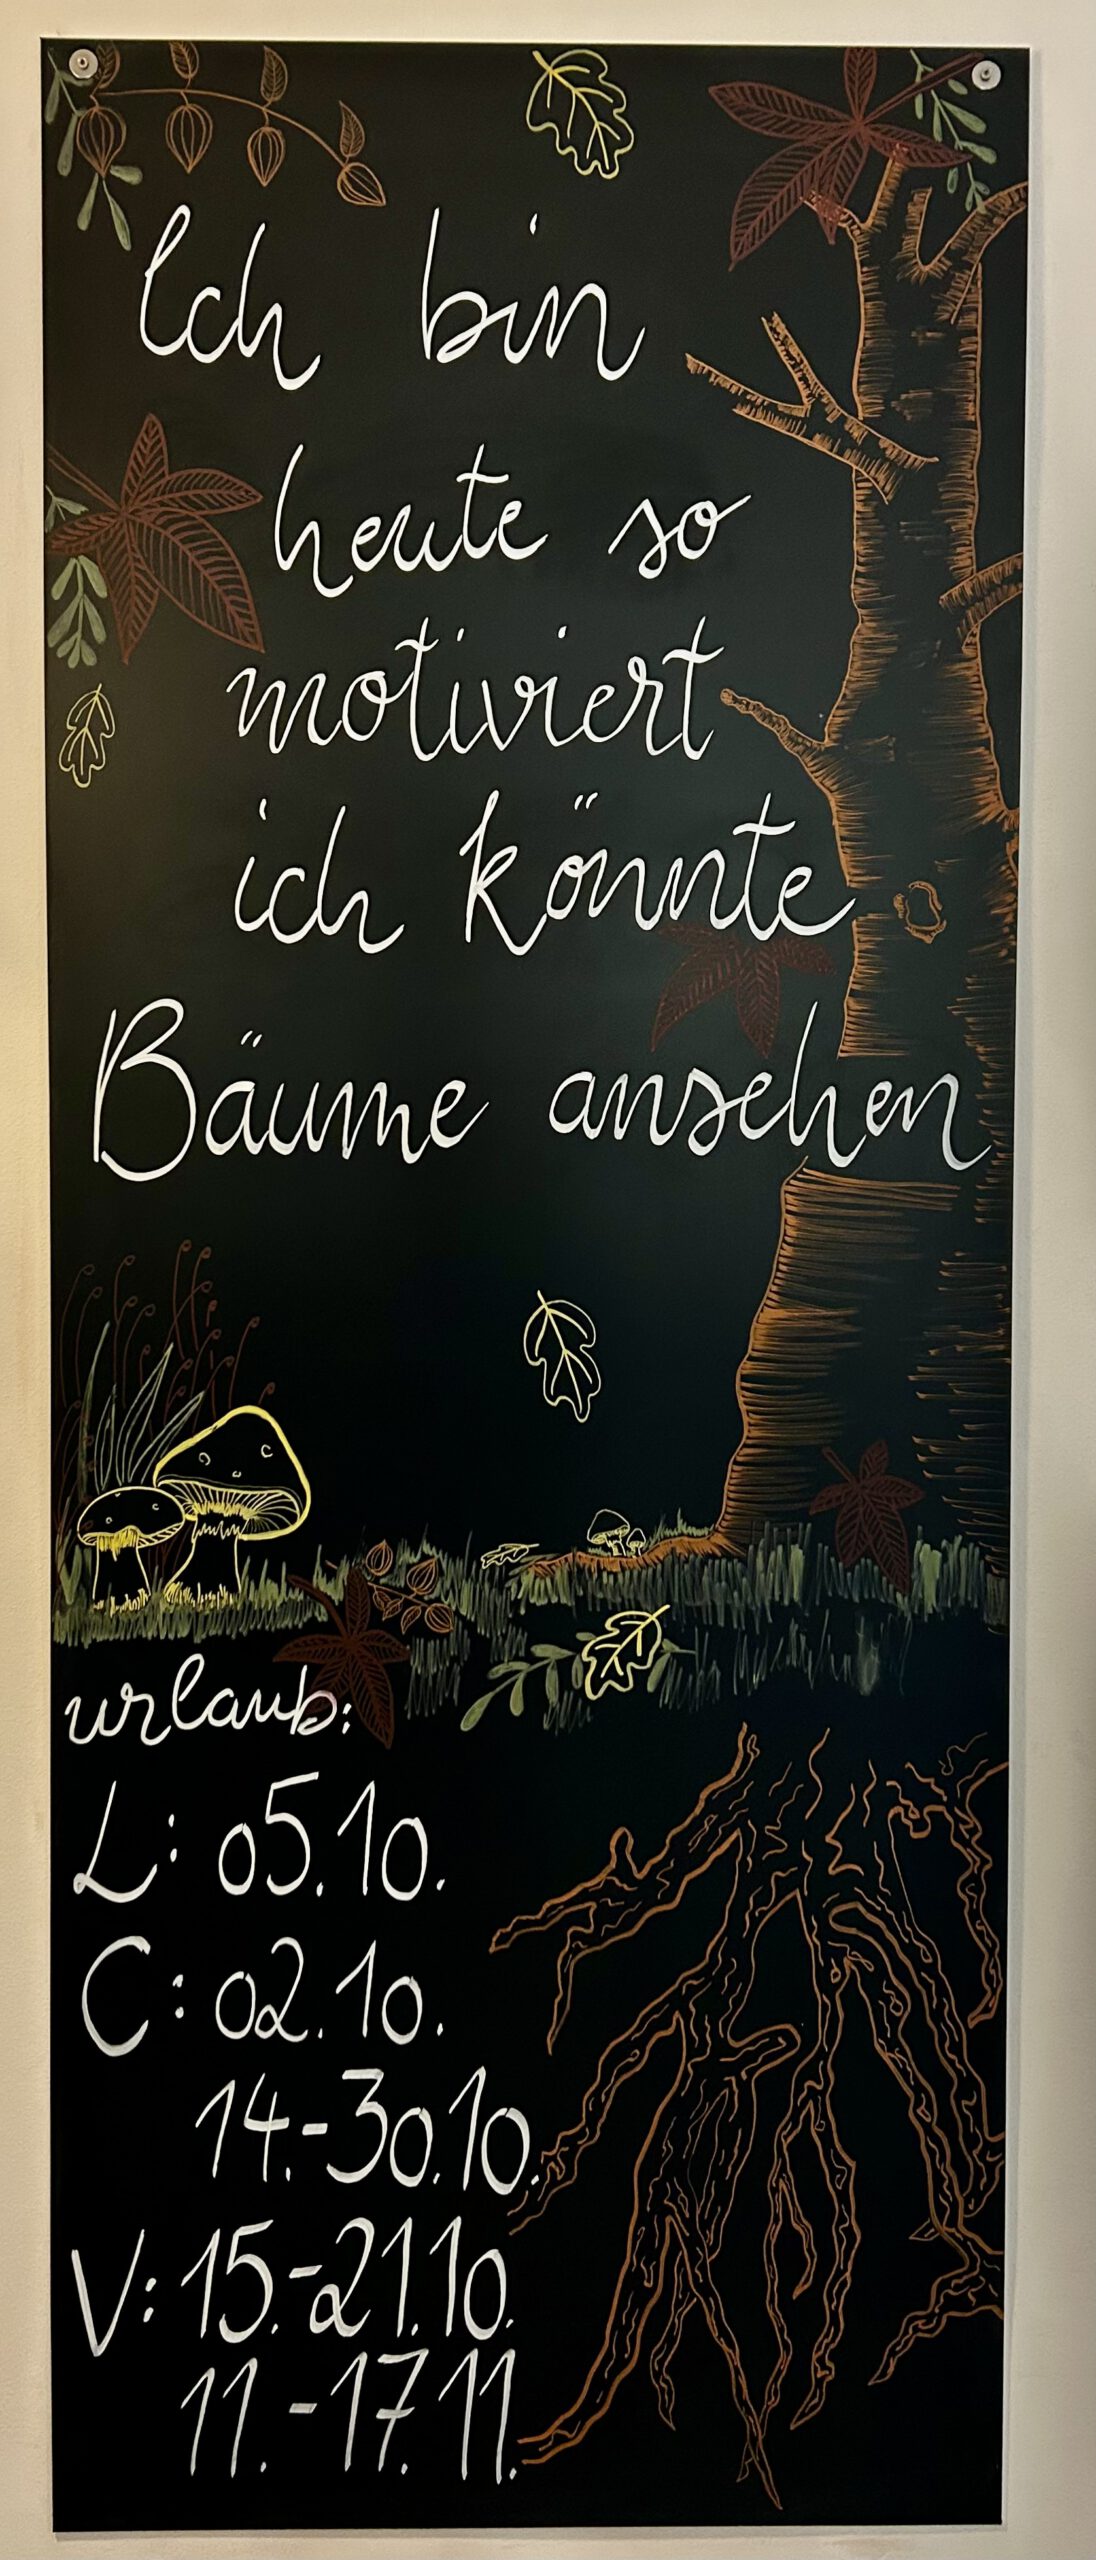 Ich bin
heute so
motiviert
ich könnte
Bäume ansehen
urlaub:
L: 05.10.
C: 02.10.
14.-30.10.
V: 15.-21.10.
11.-17.11.